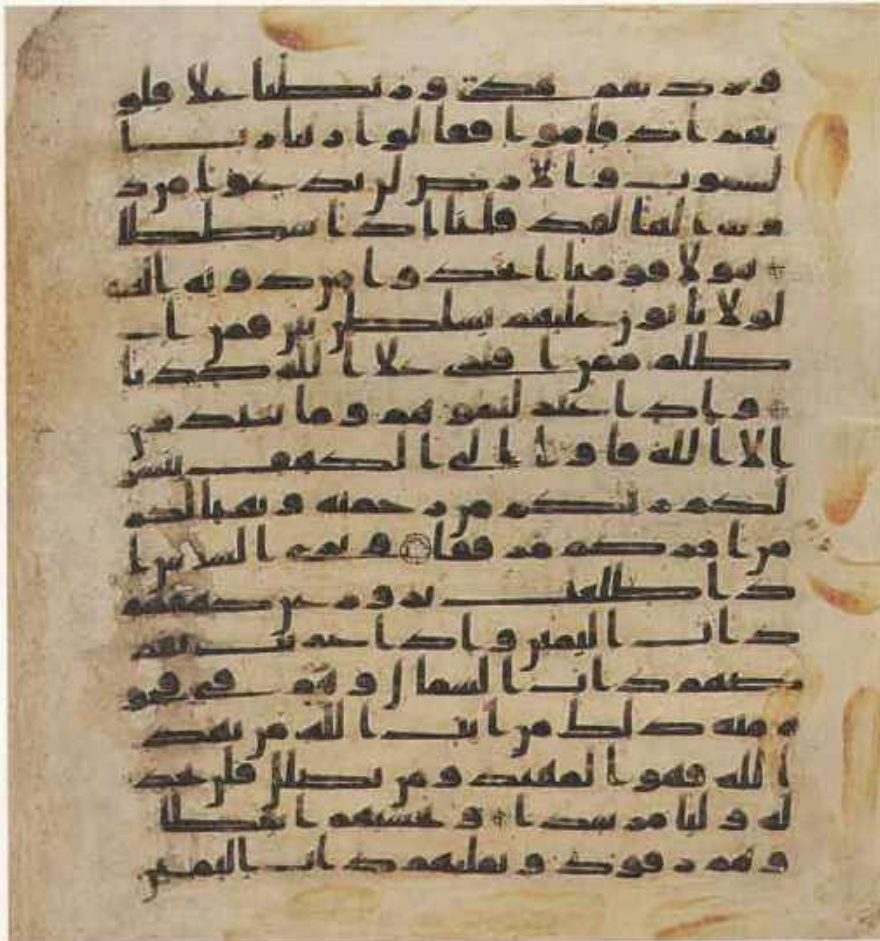 وزدنهم هدى وربطنا علا قلو
بهم اذ قاموا فقالوا ربنا رب ا
لسموت والارض لن ندعوا من د
ونه الها لقد قلنا اذا شططا
هولا قومنا اتخذوا من دونه الهه
لولا ياتون عليهم بسلطن بين فمن ا
ظلم ممن افترى علا الله كذبا
واذ اعتزلتموهم وما يعبدون
الا الله فاوا الى الكهف ينشر
لكم ربكم من رحمته ويهيا لكم
من امركم مرفقا وترى الشمس ا
ذا طلعت تزور عن كهفهم
ذات اليمين واذا غربت تقر
ضهم ذات الشمال وهم في فجو
ه منه ذلك من ايت الله من يهد
الله فهو المهتد ومن يضلل فلن تجد
له وليا مرشدا وتحسبهم ايقظا
وهم رقود ونقلبهم ذات اليمين